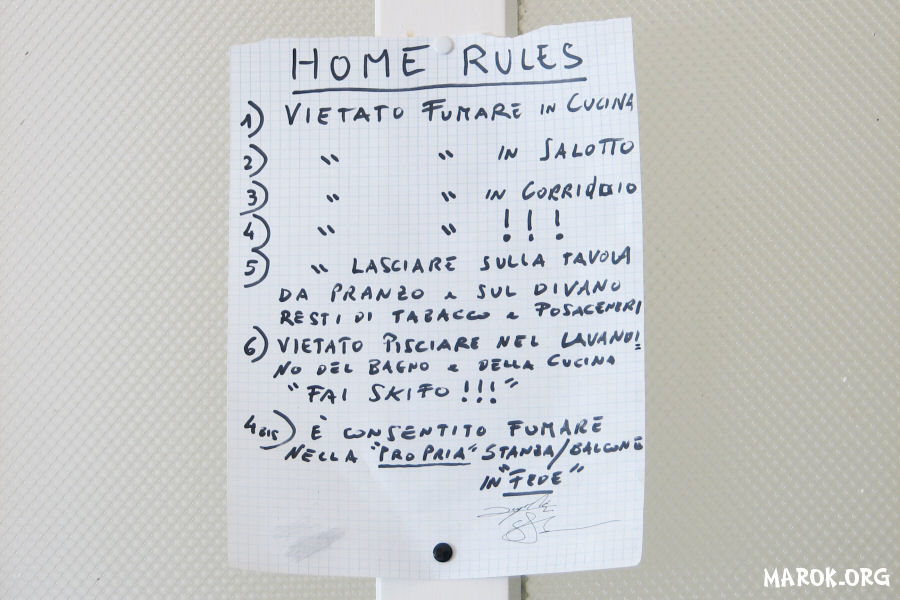 HOME RULES
1) VIETATO FUMARE IN CUCINA
2) " " IN SALOTTO
3) " " IN CORRIDOIO
4) " " !!!
5) " LASCIARE SULLA TAVOLA
DA PRANZO e SUL DIVANO
RESTI DI TABACCO e POSACENERI
6) VIETATO PISCIARE NEL LAVANDI
NO DEL BAGNO e DELLA CUCINA
"FAI SKIFO!!!"
4BIS) È CONSENTITO FUMARE
NELLA "PROPRIA" STANZA/BALCONE
IN "FEDE"
MAROK.ORG